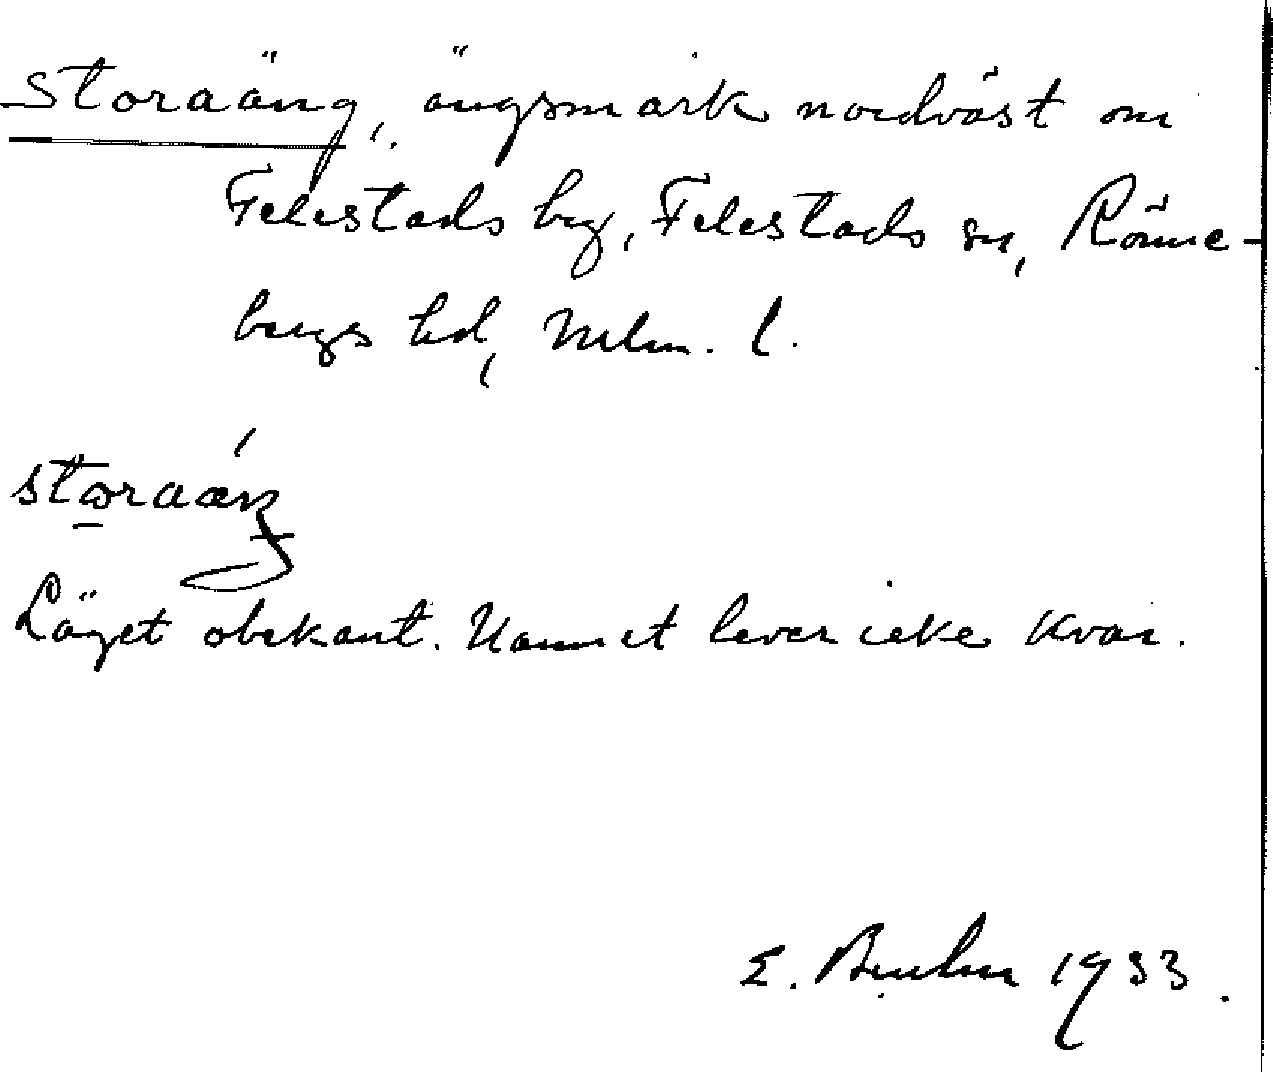 Storaäng, ängsmark nordväst om
Felestads by, Felestads sn, Rönne-
bergs hd, Mlm. l.
storaäŋ
Läget obekant. Namnet lever icke kvar.
E. 1933.